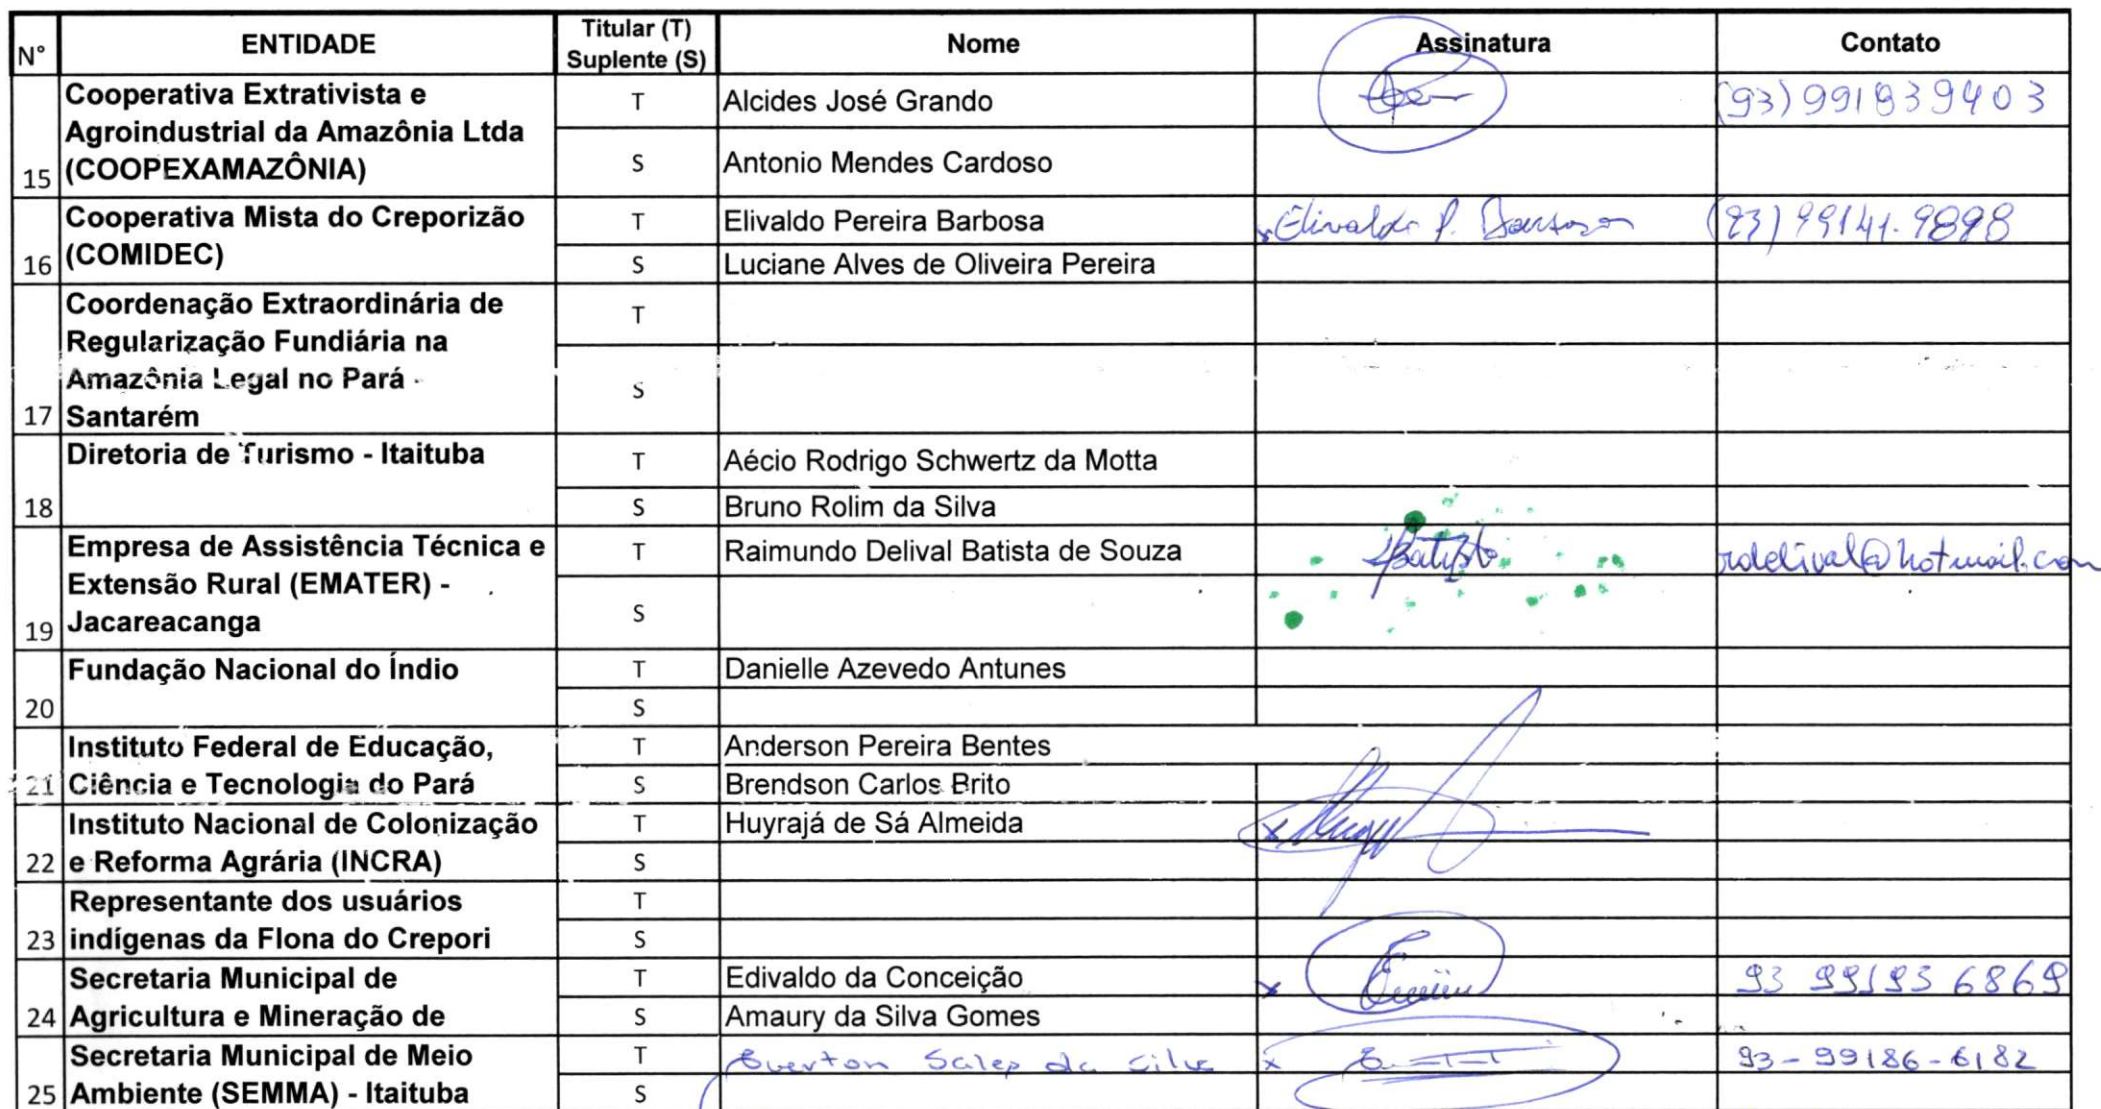 N° ENTIDADE Titular (T) Suplente (S) Nome Assinatura Contato
15 Cooperativa Extrativista e Agroindustrial da Amazônia Ltda (COOPEXAMAZÔNIA)
T Alcides José Grando (93) 991839403
S Antonio Mendes Cardoso
16 Cooperativa Mista do Creporizão (COMIDEC)
T Elivaldo Pereira Barbosa x Elivaldo P. Barbosa (93) 99141.9898
S Luciane Alves de Oliveira Pereira
17 Coordenação Extraordinária de Regularização Fundiária na Amazônia Legal no Pará - Santarém
T
S
18 Diretoria de Turismo - Itaituba
T Aécio Rodrigo Schwertz da Motta
S Bruno Rolim da Silva
19 Empresa de Assistência Técnica e Extensão Rural (EMATER) - Jacareacanga
T Raimundo Delival Batista de Souza Batista rdelival@hotmail.com
S
20 Fundação Nacional do Índio
T Danielle Azevedo Antunes
S
21 Instituto Federal de Educação, Ciência e Tecnologia do Pará
T Anderson Pereira Bentes
S Brendson Carlos Brito
22 Instituto Nacional de Colonização e Reforma Agrária (INCRA)
T Huyrajá de Sá Almeida x
S
23 Representante dos usuários indígenas da Flona do Crepori
T
S
24 Secretaria Municipal de Agricultura e Mineração de
T Edivaldo da Conceição x 93 99193 6869
S Amaury da Silva Gomes
25 Secretaria Municipal de Meio Ambiente (SEMMA) - Itaituba
T Everton Sales da Silva x 93-99186-6182
S